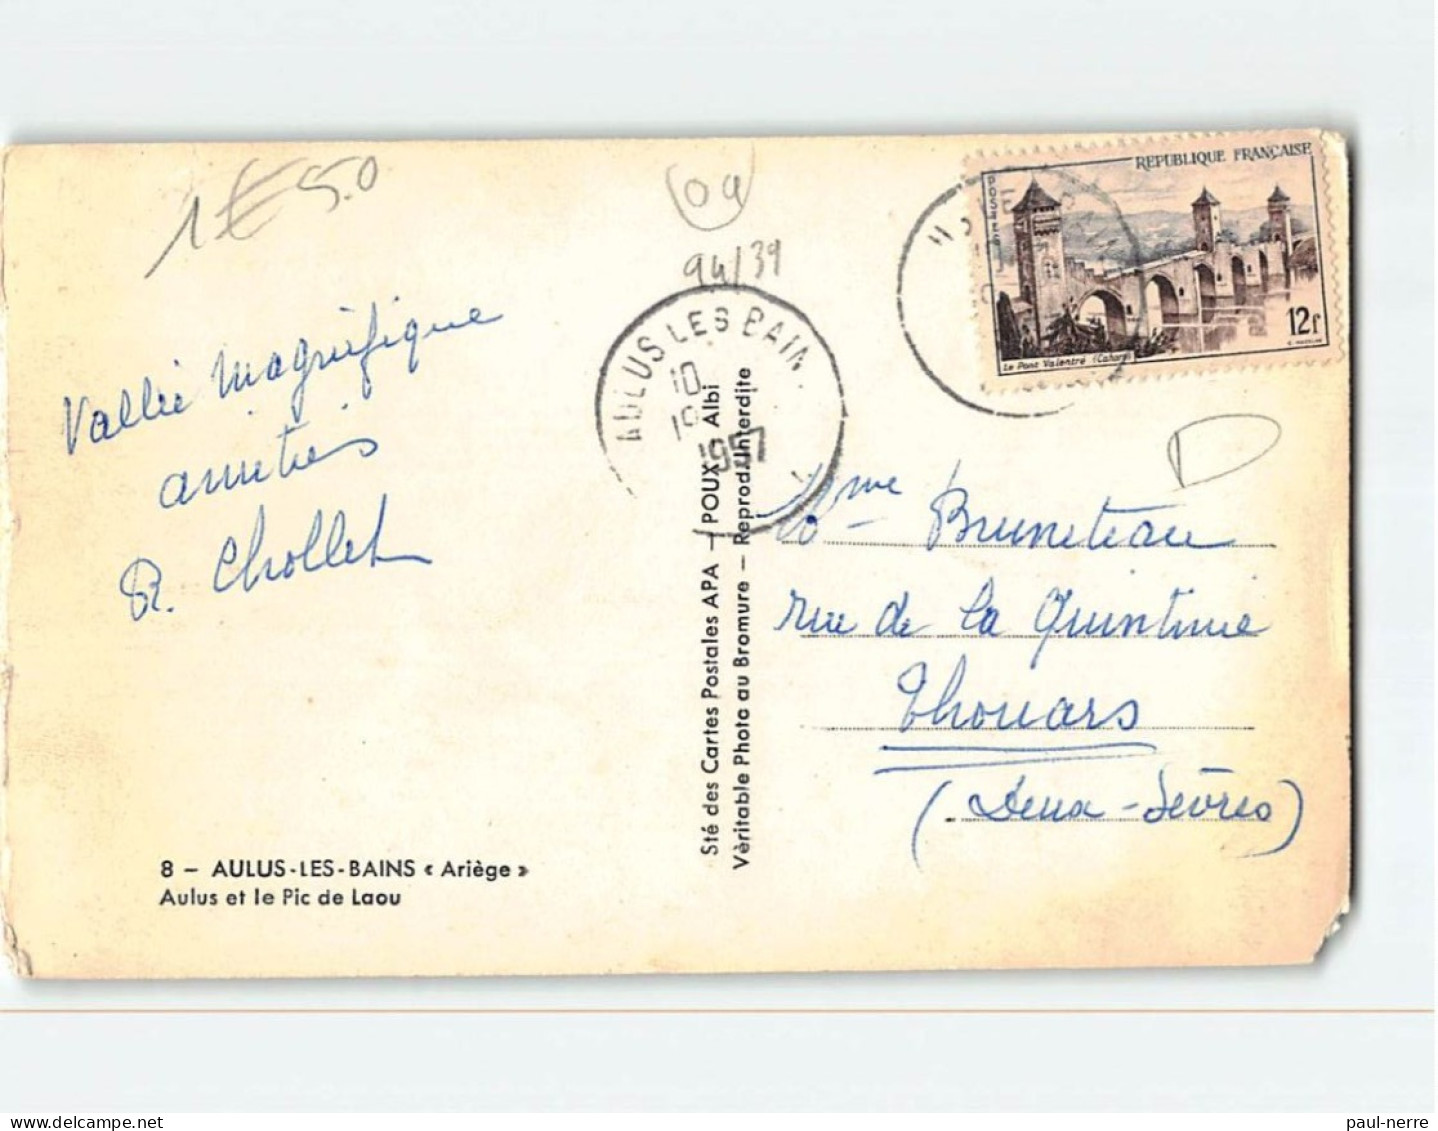 1€50
09
94/39
REPUBLIQUE FRANÇAISE
POSTES
12F
Le Pont Valentré (Cahors)
AULUS LES BAINS
10
19
1957
Vallée Magnifique
amitiés
R. Chollet
Mme Bruneteau
rue de la Quintinie
Thouars
(Deux-Sèvres)
Sté des Cartes Postales APA — POUX Albi
Vèritable Photo au Bromure — Reprod. Interdite
8 - AULUS-LES-BAINS « Ariège »
Aulus et le Pic de Laou
paul-nerre